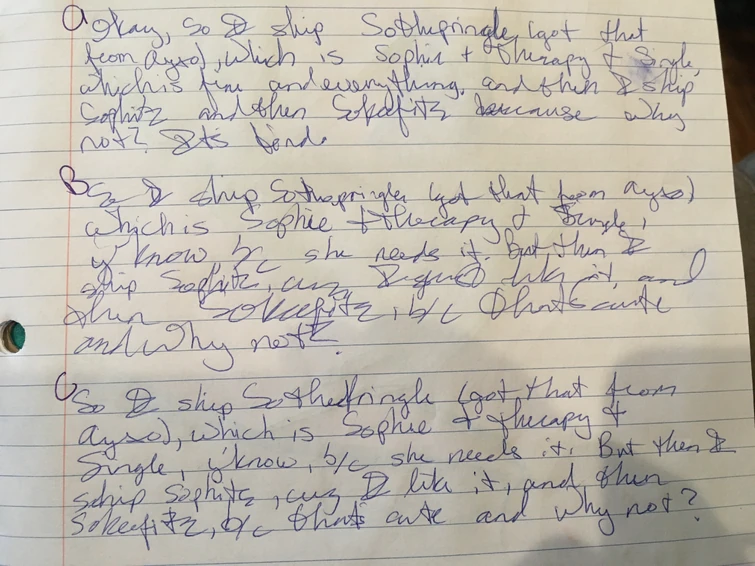 A Okay, so I ship Sothepringle (got that
from ayso), which is Sophie + therapy + Single,
which is fine and everything. and then I ship
Sophitz and then Sokeefitz because why
not? Its
B So I ship Sothapringle (got that from ayso)
which is Sophie + therapy + Single,
y'know b/c she needs it. But then I
ship Sophitz, cuz I like it, and
then Sokeefitz, b/c thats cute
and why not?
C So I ship (got that from
ayso), which is Sophie + therapy +
Single, y'know, b/c she needs it. But then I
ship Sophitz, cuz I like it, and then
Sokeefitz, b/c thats cute and why not?